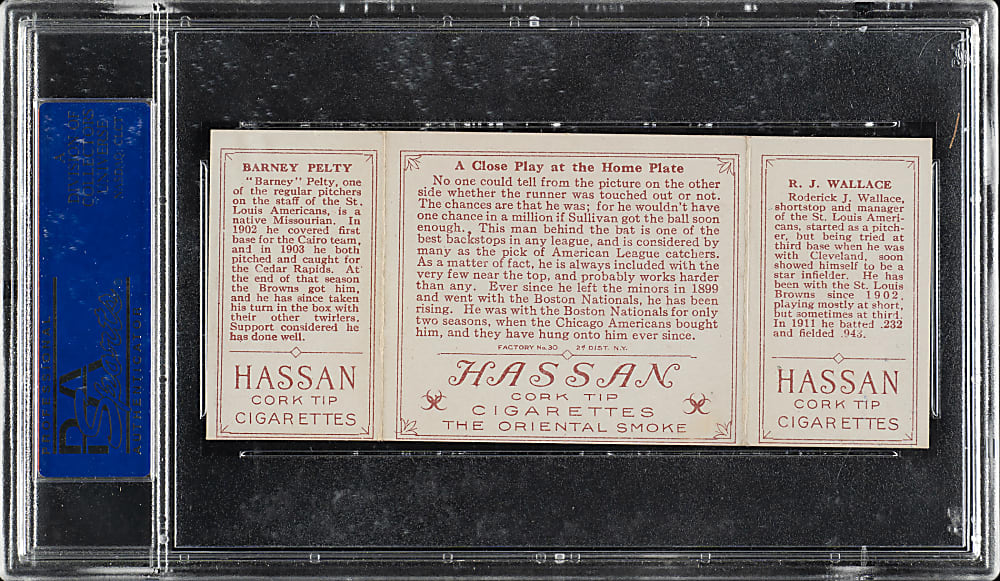 BARNEY PELTY
"Barney" Pelty, one
of the regular pitchers
on the staff of the St.
Louis Americans, is a
native Missourian. In
1902 he covered first
base for the Cairo team,
and in 1903 he both
pitched and caught for
the Cedar Rapids. At
the end of that season
the Browns got him,
and he has since taken
his turn in the box with
their other twirlers.
Support considered he
has done well.
HASSAN
CORK TIP
CIGARETTES
A Close Play at the Home Plate
No one could tell from the picture on the other
side whether the runner was touched out or not.
The chances are that he was; for he wouldn't have
one chance in a million if Sullivan got the ball soon
enough. This man behind the bat is one of the
best backstops in any league, and is considered by
many as the pick of American League catchers.
As a matter of fact, he is always included with the
very few near the top, and probably works harder
than any. Ever since he left the minors in 1899
and went with the Boston Nationals, he has been
rising. He was with the Boston Nationals for only
two seasons, when the Chicago Americans bought
him, and they have hung onto him ever since.
FACTORY No. 30 2d DIST. N.Y.
HASSAN
CORK TIP
CIGARETTES
THE ORIENTAL SMOKE
R. J. WALLACE
Roderick J. Wallace,
shortstop and manager
of the St. Louis Ameri-
cans, started as a pitch-
er, but being tried at
third base when he was
with Cleveland, soon
showed himself to be a
star infielder. He has
been with the St. Louis
Browns since 1902,
playing mostly at short,
but sometimes at third.
In 1911 he batted .232
and fielded .943.
HASSAN
CORK TIP
CIGARETTES
PSA